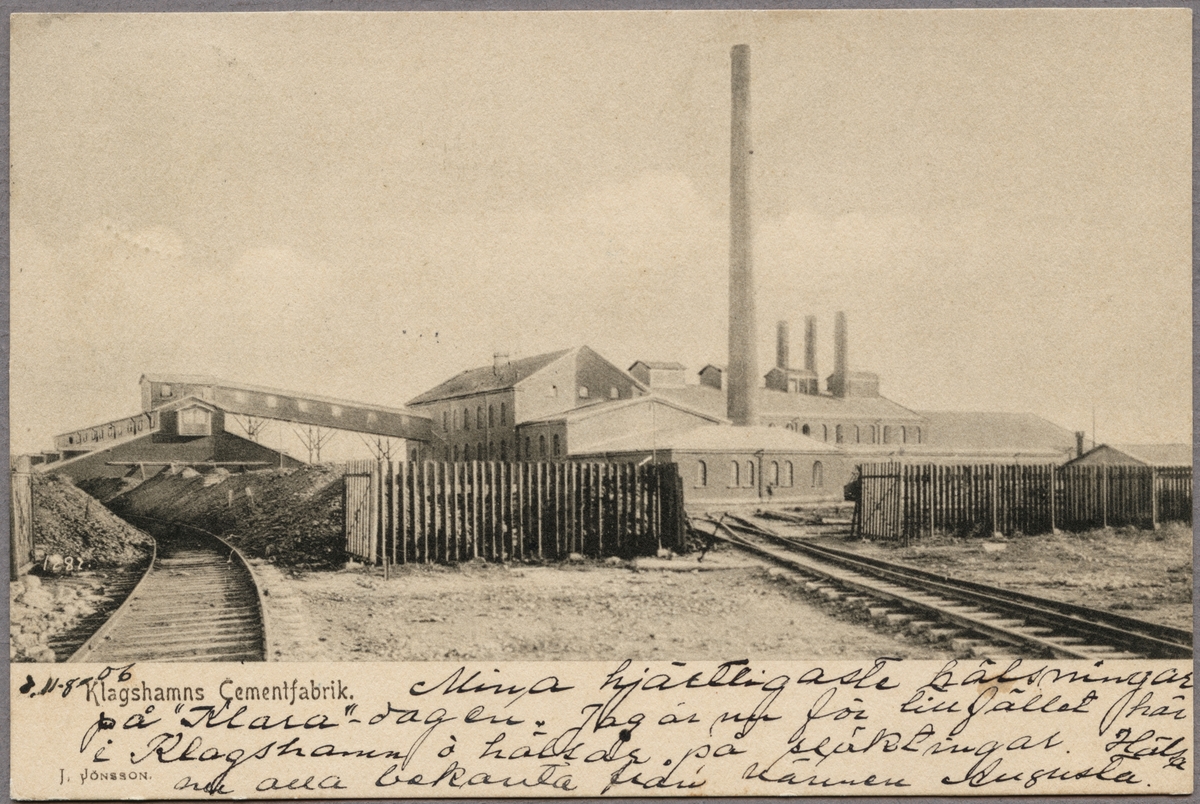 1282.
d. 11-8-06
Klagshamns Cementfabrik.
Minna hjärtligaste hälsningar
på "Klara"-dagen. Jag är nu för tillfället här
i Klagshamn o hälsar på släktingar. Hälsa
nu alla bekanta från vännen Augusta.
J. JÖNSSON.